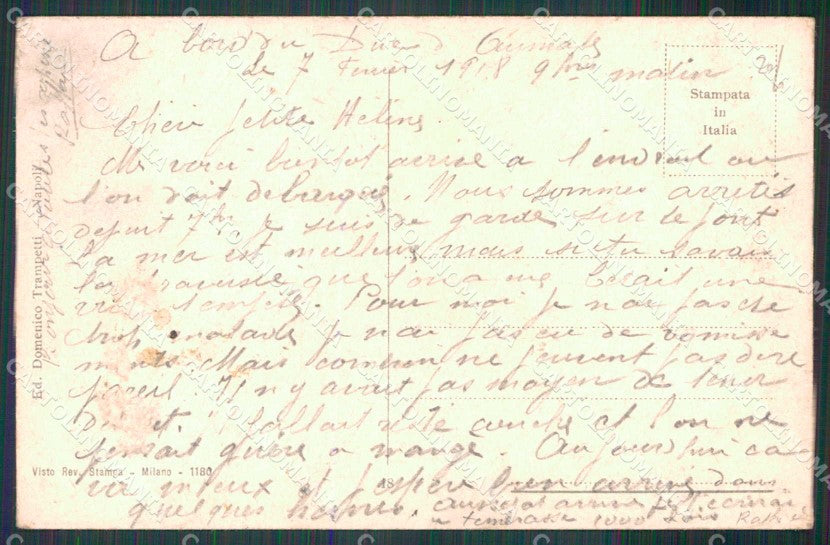 A bord du Duc d'Aumale
le 7 Fevrier 1918 9 hres matin
Stampata
in
Italia
Chère petite Hélène.
Me voici bientôt arrivé a l'endroit ou
l'on doit debarquer. Nous sommes arretés
depuis 7h je suis de garde sur le pont
la mer est meilleure mais si tu savais
la traversée que l'on a eue C'était une
vraie tempête. Pour moi je n'ai pas été
trop malade je n'ai pas eu de vomisse
ments Mais combien ne peuvent pas dire
pareil. Il n'y avait pas moyen de tenir
debout. Il fallait resté couché et l'on ne
pensait guère a mangé. Aujourd'hui ca
va mieux et j'espère bien arrivé dans
quelques heures. aussitot arrivé je t'ecrirai
tendresse 1000 fois
Ed. Domenico Trampetti - Napoli
Visto Rev. Stampa - Milano - 1180
CARTOLINOMANIA